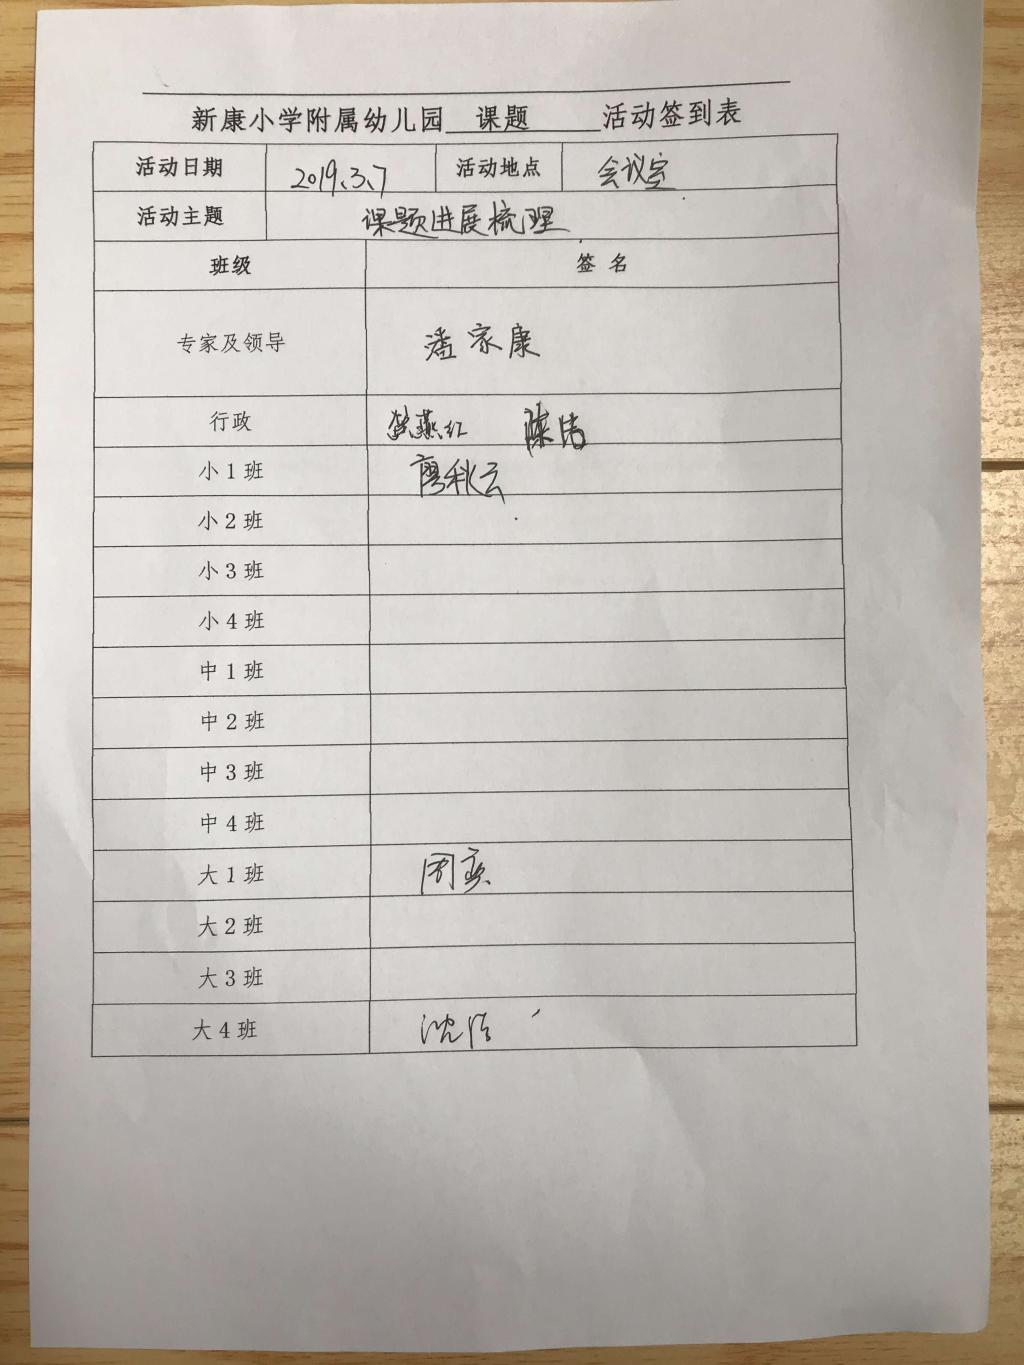 新康小学附属幼儿园 课题 活动签到表
活动日期 2019.3.7 活动地点 会议室
活动主题 课题进展梳理
班级 签 名
专家及领导 潘家康
行政 燕红 陈洁
小1班 廖秋云
小2班
小3班
小4班
中1班
中2班
中3班
中4班
大1班 周奕
大2班
大3班
大4班 沈洁